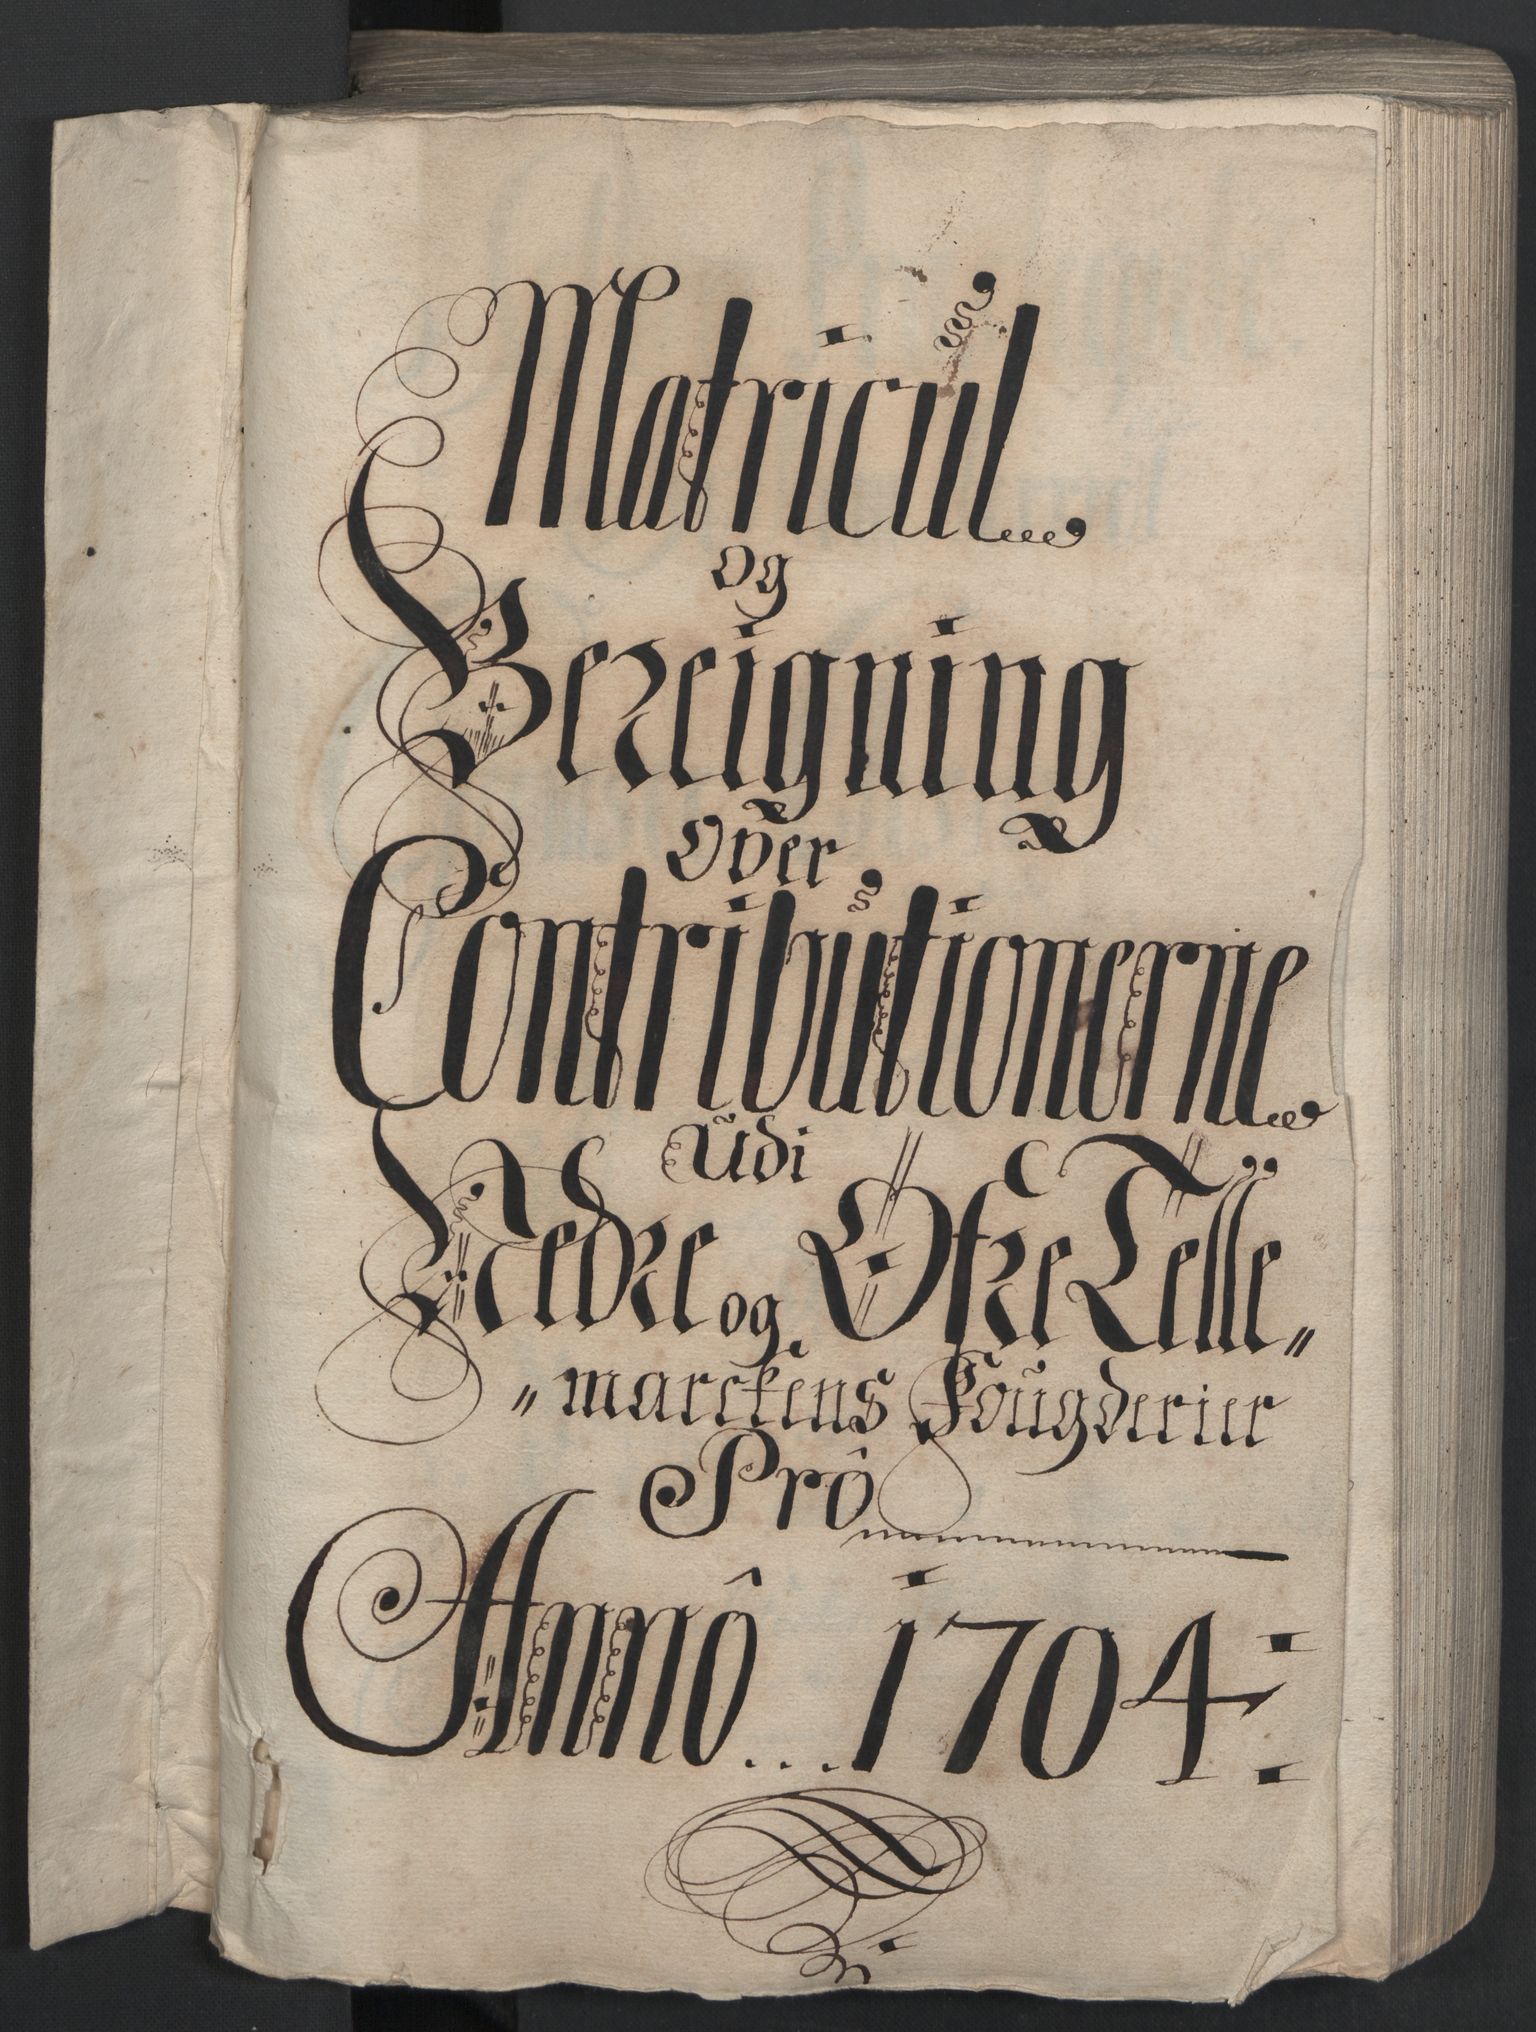 Matricul
og
Bereigning
Over
Contributionerne
Udi
Nedre og Øfre Telle„
„marckens Fougderier
Prô
Annô... 1704: